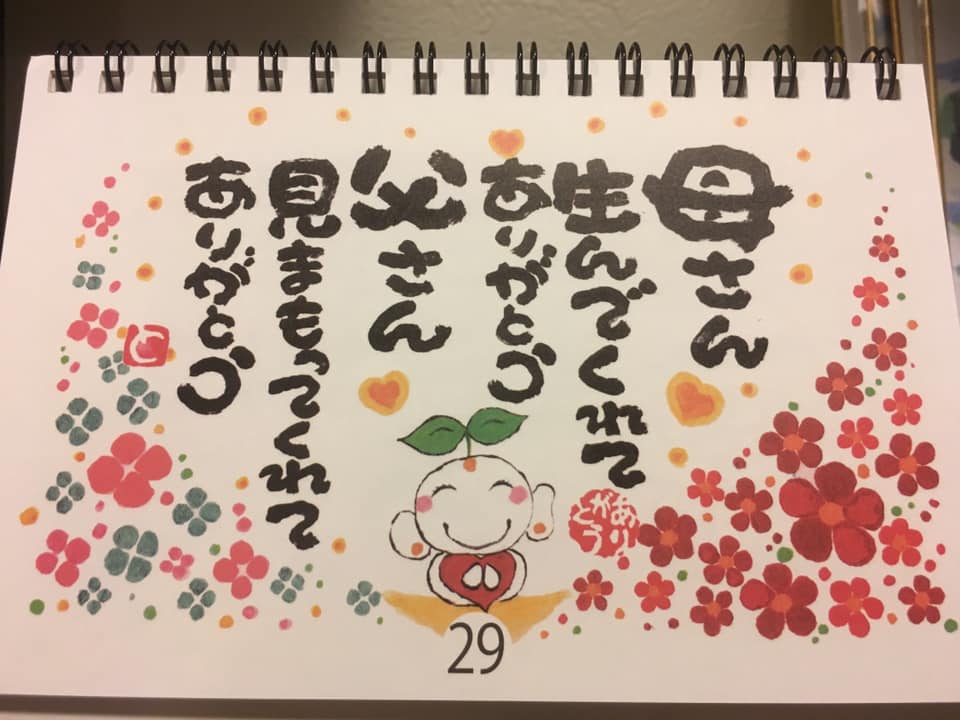 母さん
生んでくれて
ありがとう
父さん
見まもってくれて
ありがとう
ありがとう
29